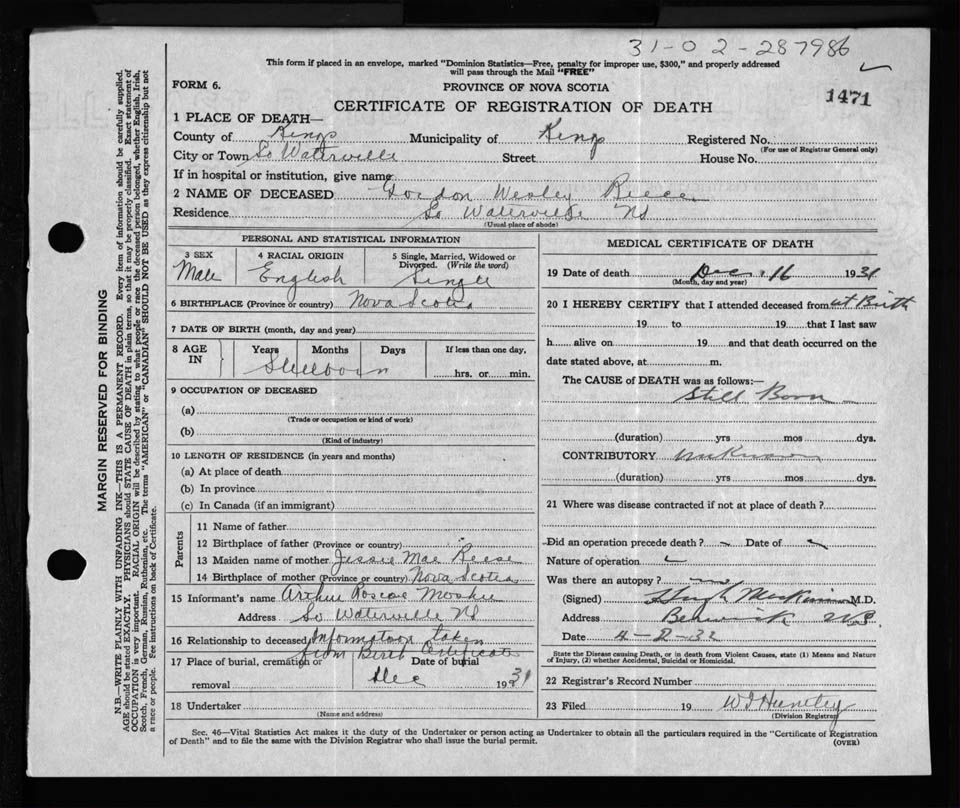 31-02-287986
This form if placed in an envelope, marked "Dominion Statistics—Free, penalty for improper use, $300," and properly addressed
will pass through the Mail "FREE"
FORM 6.
PROVINCE OF NOVA SCOTIA
1471
CERTIFICATE OF REGISTRATION OF DEATH
1 PLACE OF DEATH—
County of Kings Municipality of Kings Registered No.
(For use of Registrar General only)
City or Town So Waterville Street House No.
If in hospital or institution, give name
2 NAME OF DECEASED Gordon Wesley Reece
Residence So Waterville NS
(Usual place of abode)
PERSONAL AND STATISTICAL INFORMATION
3 SEX 4 RACIAL ORIGIN 5 Single, Married, Widowed or
Divorced. (Write the word)
Male English Single
6 BIRTHPLACE (Province or country) Nova Scotia
7 DATE OF BIRTH (month, day and year)
8 AGE IN Years Months Days If less than one day,
Stillborn hrs. or min.
9 OCCUPATION OF DECEASED
(a)
(Trade or occupation or kind of work)
(b)
(Kind of industry)
10 LENGTH OF RESIDENCE (in years and months)
(a) At place of death
(b) In province
(c) In Canada (if an immigrant)
Parents
11 Name of father
12 Birthplace of father (Province or country)
13 Maiden name of mother Jessie Mae Reese
14 Birthplace of mother (Province or country) Nova Scotia
15 Informant's name Arthur Roscoe
Address So Waterville NS
16 Relationship to deceased Information taken
from Birth Certificate
17 Place of burial, cremation or Date of burial
removal Dec 1931
18 Undertaker
(Name and address)
MEDICAL CERTIFICATE OF DEATH
19 Date of death Dec. 16 1931
(Month, day and year)
20 I HEREBY CERTIFY that I attended deceased from at Birth
19 to 19 that I last saw
h alive on 19 and that death occurred on the
date stated above, at m.
The CAUSE of DEATH was as follows:—
Still Born
(duration) yrs mos dys.
CONTRIBUTORY unknown
(duration) yrs mos dys.
21 Where was disease contracted if not at place of death?
Did an operation precede death? Date of
Nature of operation
Was there an autopsy? no
(Signed) Hugh M.D.
Address Berwick N.S.
Date 4-2-32
State the Disease causing Death, or in death from Violent Causes, state (1) Means and Nature
of Injury, (2) whether Accidental, Suicidal or Homicidal.
22 Registrar's Record Number
23 Filed 19 Huntley
(Division Registrar)
Sec. 46—Vital Statistics Act makes it the duty of the Undertaker or person acting as Undertaker to obtain all the particulars required in the "Certificate of Registration
of Death" and to file the same with the Division Registrar who shall issue the burial permit.
(OVER)
MARGIN RESERVED FOR BINDING
N.B.—WRITE PLAINLY WITH UNFADING INK—THIS IS A PERMANENT RECORD. Every item of information should be carefully supplied.
AGE should be stated EXACTLY. PHYSICIANS should STATE CAUSE OF DEATH in plain terms, so that it may be properly classified. Exact statement of
OCCUPATION is very important. RACIAL ORIGIN will be described by stating to what people or race the deceased person belonged, whether English, Irish,
Scotch, French, German, Russian, Ruthenian, etc. The terms "AMERICAN" or "CANADIAN" SHOULD NOT BE USED as they express citizenship but not
a race or people. See instructions on back of Certificate.